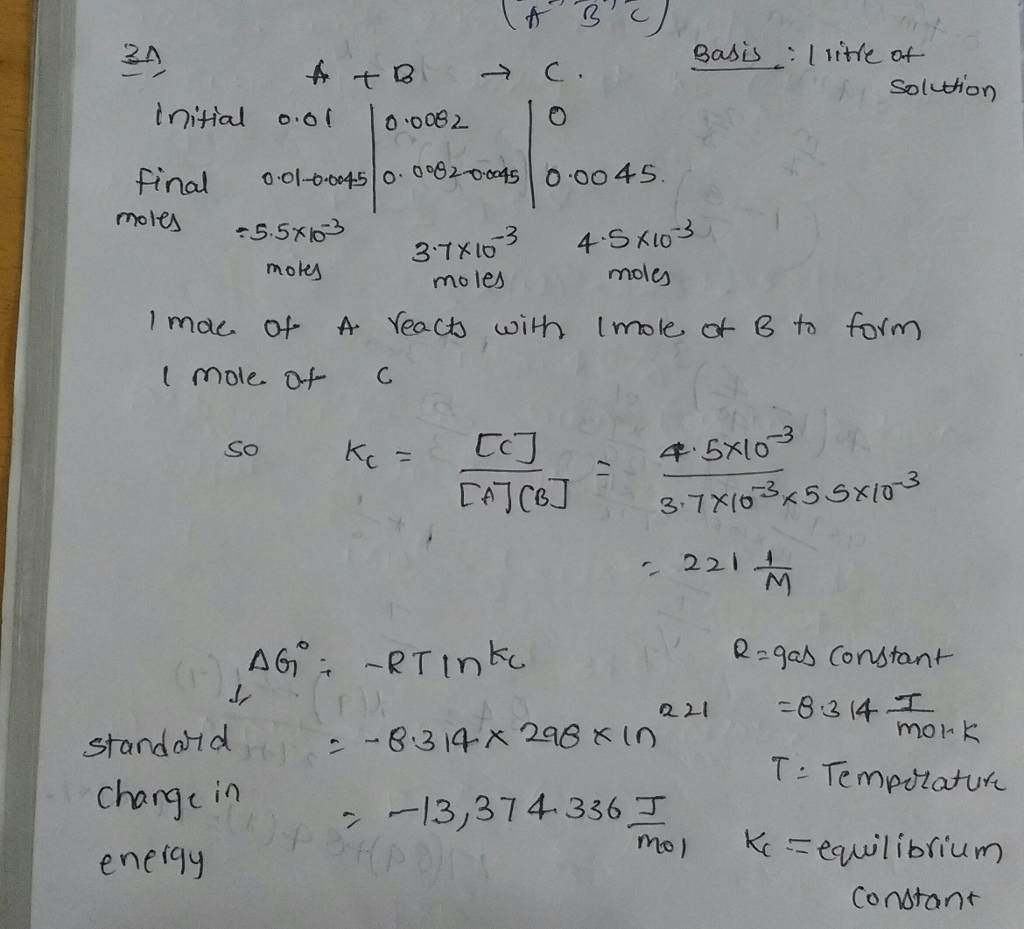 (A B C)
3A
A + B → C.
Basis : 1 litre of
solution
Initial 0.01 | 0.0082 | 0
final 0.01-0.0045 | 0.0082-0.0045 | 0.0045.
moles =5.5×10⁻³ 3.7×10⁻³ 4.5×10⁻³
moles moles moles
1 mole of A reacts with 1 mole of B to form
1 mole of C
so Kc = [C] / [A][B] = 4.5×10⁻³ / 3.7×10⁻³×5.5×10⁻³
= 221 1/M
ΔG° = -RT ln Kc
R = gas constant
= 8.314 J/mol-k
↓
standard = -8.314 × 298 × ln 221
T = Temperature
change in = -13,374.336 J/mol
energy
Kc = equilibrium
constant